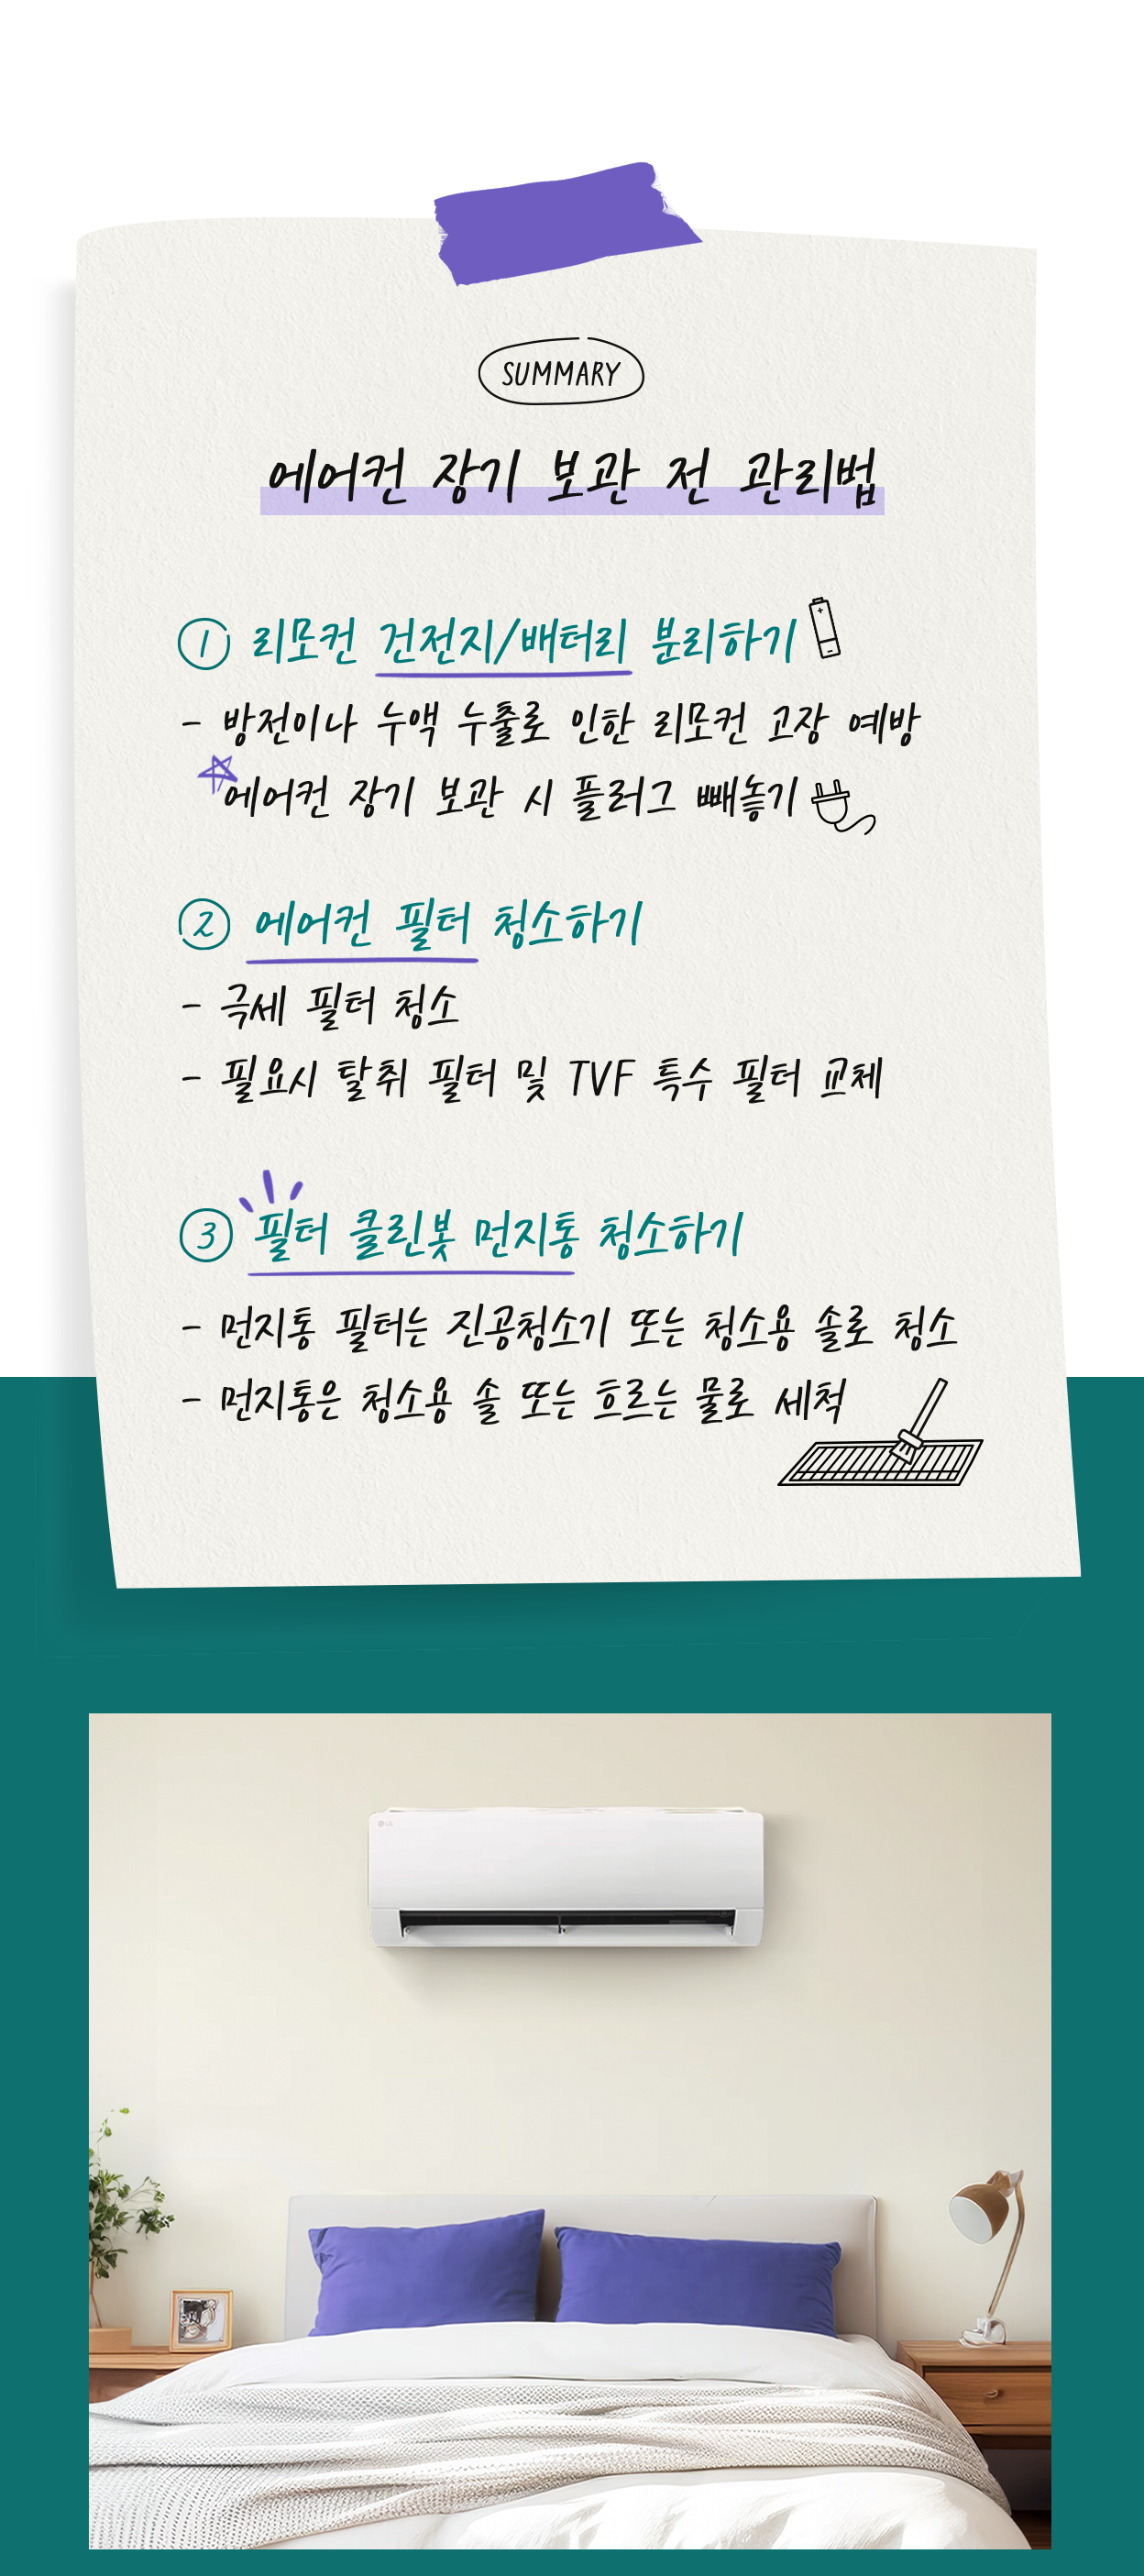 SUMMARY
에어컨 장기 보관 전 관리법
① 리모컨 건전지/배터리 분리하기
- 방전이나 누액 누출로 인한 리모컨 고장 예방
에어컨 장기 보관 시 플러그 빼놓기
② 에어컨 필터 청소하기
- 극세 필터 청소
- 필요시 탈취 필터 및 TVF 특수 필터 교체
③ 필터 클린봇 먼지통 청소하기
- 먼지통 필터는 진공청소기 또는 청소용 솔로 청소
- 먼지통은 청소용 솔 또는 흐르는 물로 세척
LG